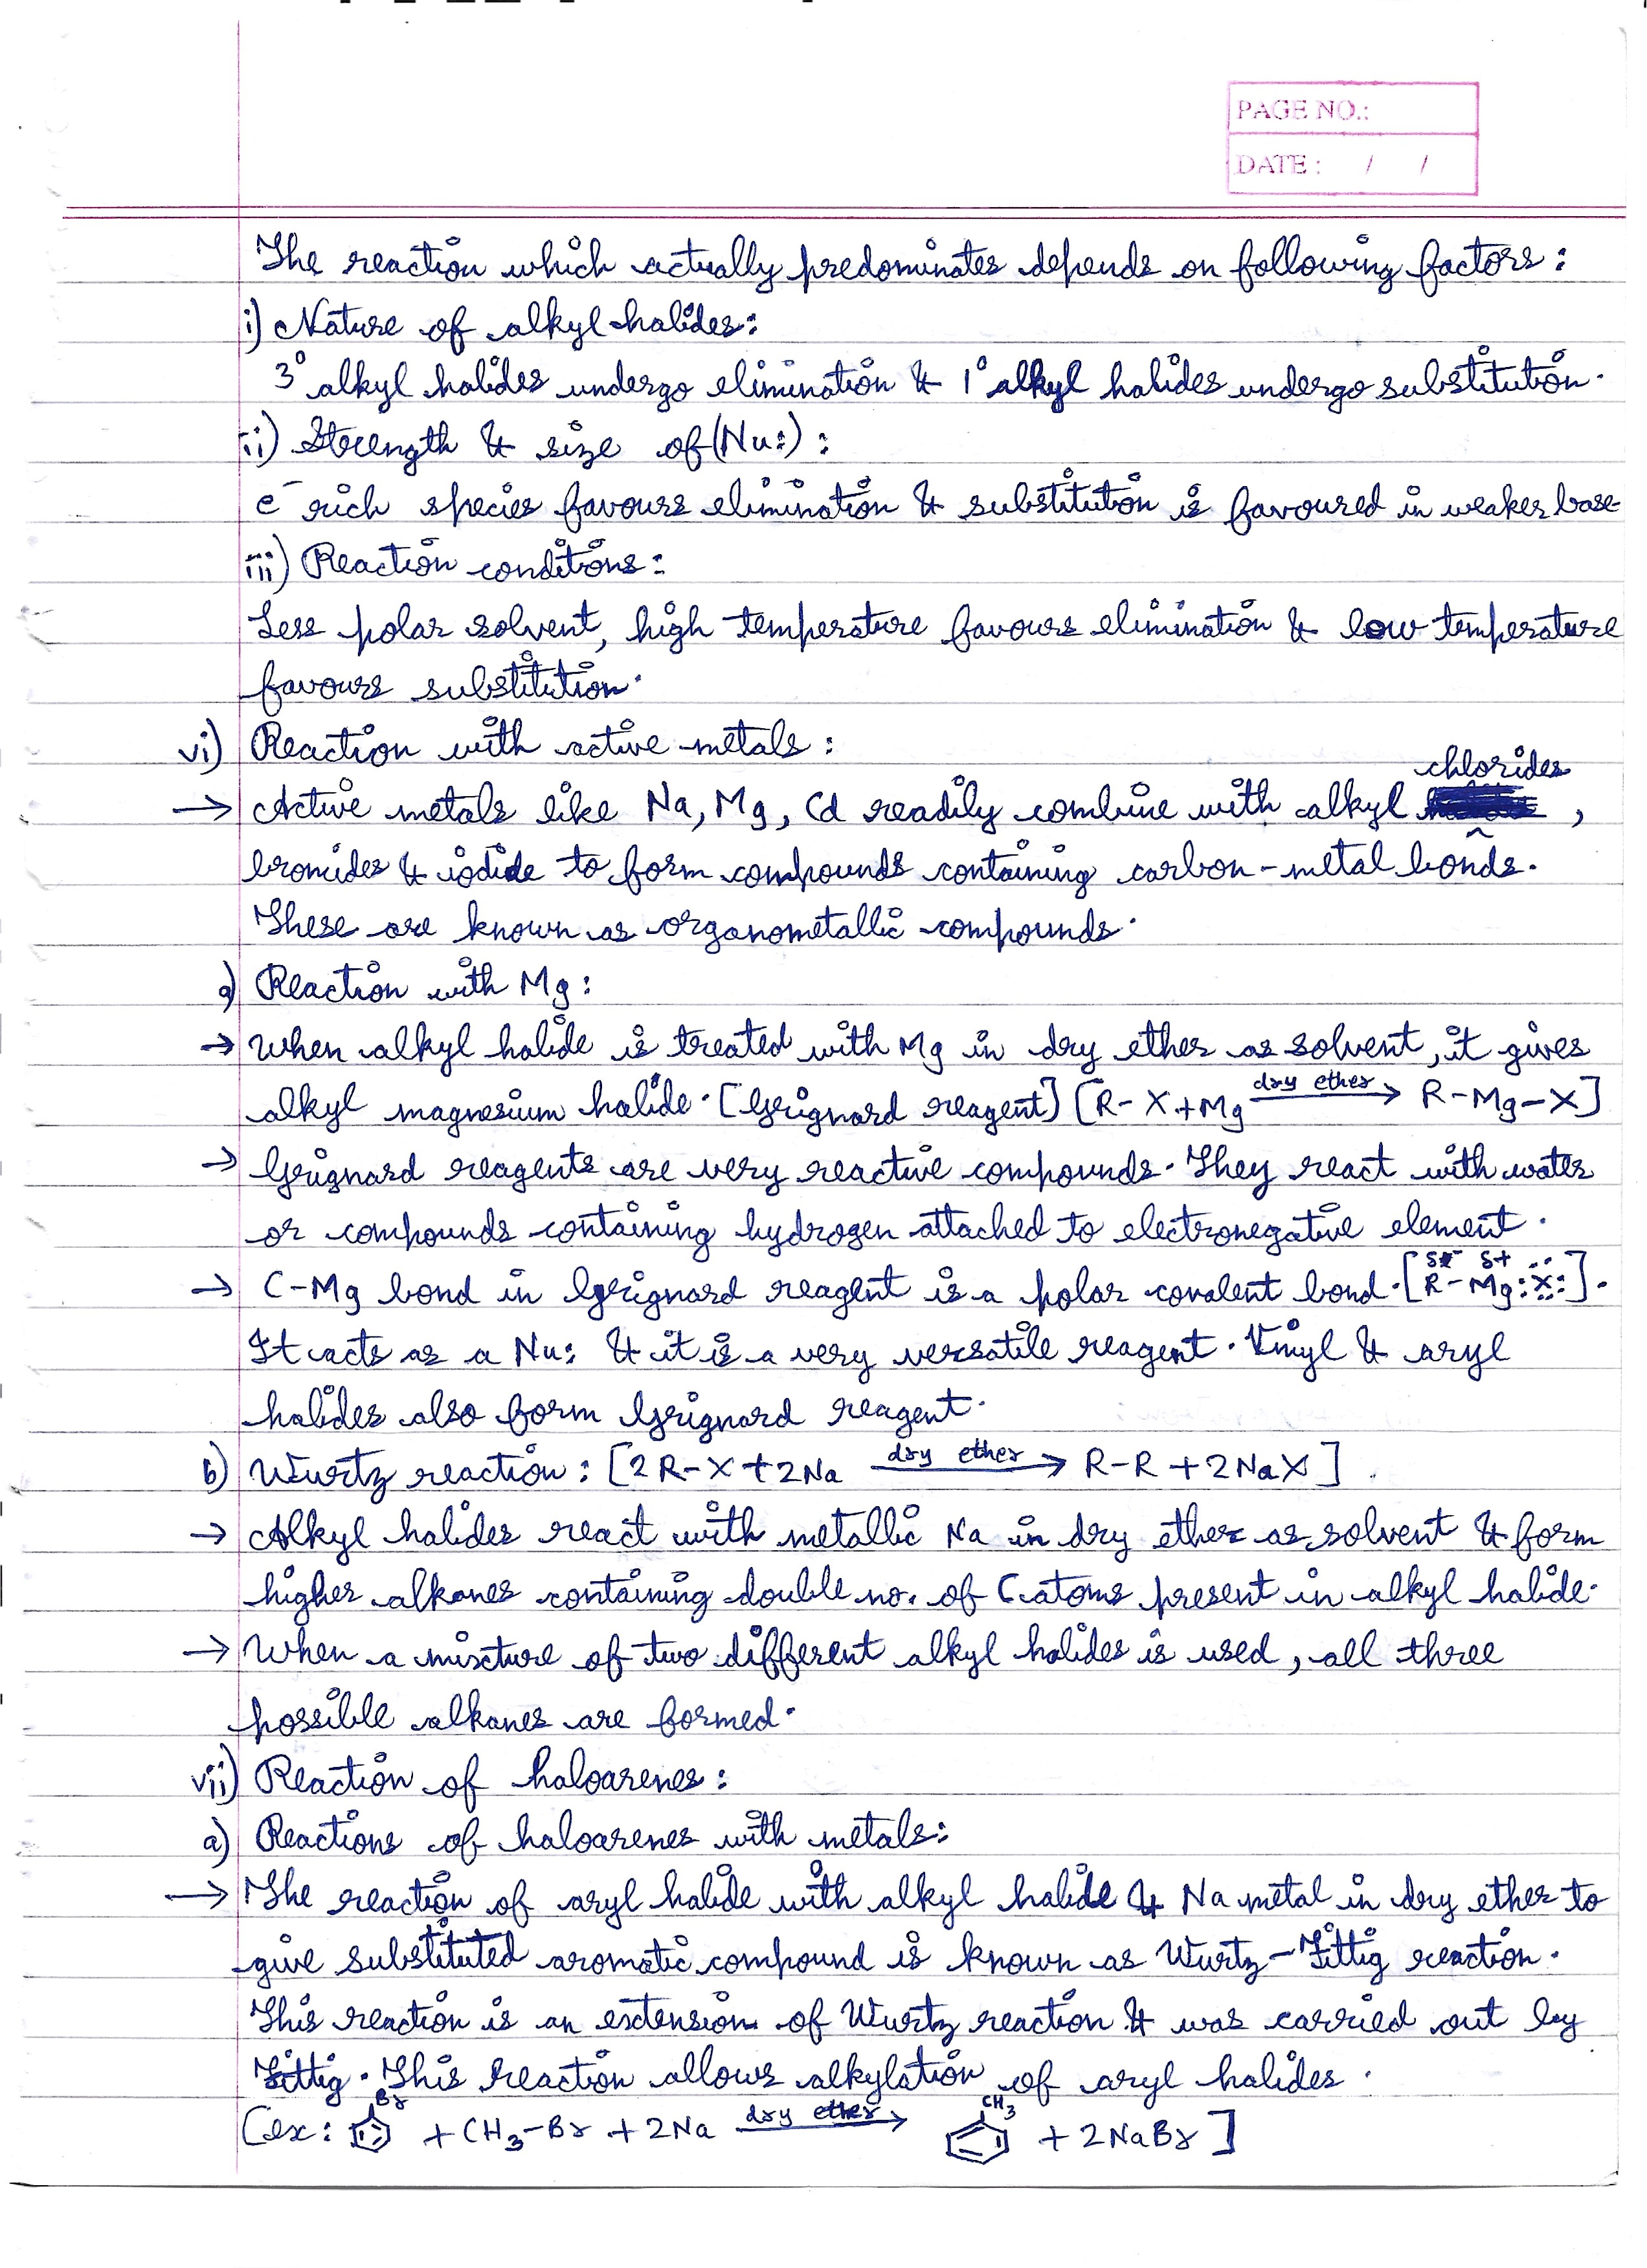 PAGE NO.:
DATE : / /
The reaction which actually predominates depends on following factors :
i) Nature of alkyl halides :
3° alkyl halides undergo elimination & 1° alkyl halides undergo substitution.
ii) Strength & size of (Nu:) :
e⁻ rich species favours elimination & substitution is favoured in weaker base
iii) Reaction conditions :
Less polar solvent, high temperature favours elimination & low temperature
favours substitution.
vi) Reaction with active metals :
chlorides
→ Active metals like Na, Mg, Cd readily combine with alkyl ,
bromides & iodide to form compounds containing carbon-metal bonds.
These are known as organometallic compounds.
a) Reaction with Mg :
→ When alkyl halide is treated with Mg in dry ether as solvent, it gives
alkyl magnesium halide. [Grignard reagent] [R-X + Mg dry ether→ R-Mg-X]
→ Grignard reagents are very reactive compounds. They react with water
or compounds containing hydrogen attached to electronegative element.
→ C-Mg bond in Grignard reagent is a polar covalent bond. [δ⁻R - δ+Mg :Ẍ:].
It acts as a Nu: & it is a very versatile reagent. Vinyl & aryl
halides also form Grignard reagent.
b) Wurtz reaction : [2R-X + 2Na dry ether→ R-R + 2NaX].
→ Alkyl halides react with metallic Na in dry ether as solvent & form
higher alkanes containing double no. of C atoms present in alkyl halide.
→ When a mixture of two different alkyl halides is used, all three
possible alkanes are formed.
vii) Reaction of haloarenes :
a) Reactions of haloarenes with metals :
→ The reaction of aryl halide with alkyl halide & Na metal in dry ether to
give substituted aromatic compound is known as Wurtz-Fittig reaction.
This reaction is an extension of Wurtz reaction & was carried out by
Fittig. This reaction allows alkylation of aryl halides.
[ex: Br + CH₃-Br + 2Na dry ether→ CH₃ + 2NaBr]